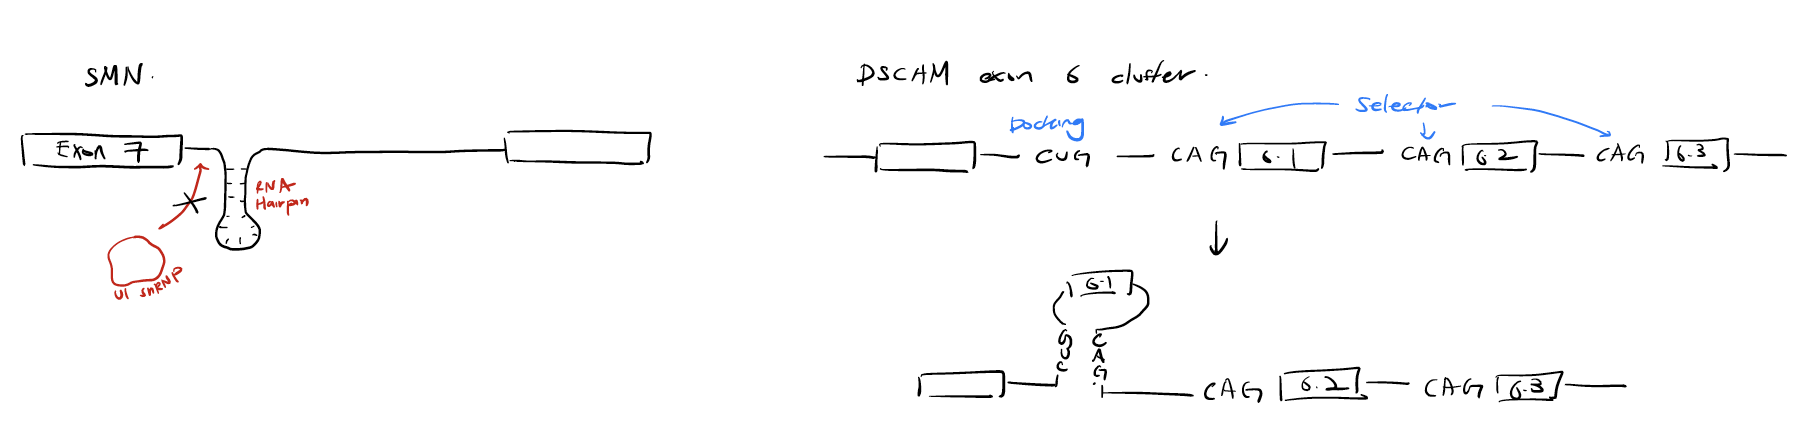 SMN.
Exon 7
RNA
Hairpin
U1 snRNP
DSCAM exon 6 cluster.
Docking
Selector
CUG CAG 6.1 CAG 6.2 CAG 6.3
6.1
GUC CAG
CAG 6.2 CAG 6.3